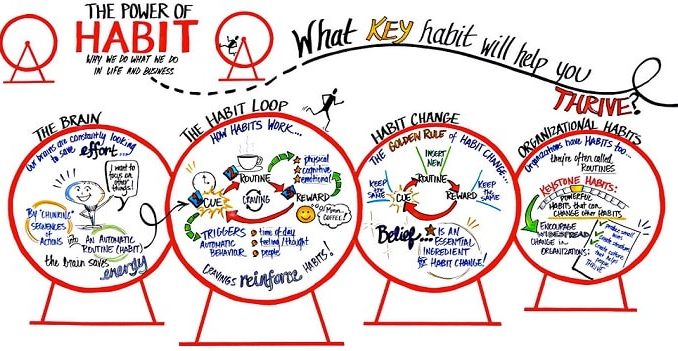 THE POWER OF
HABIT
WHY WE DO WHAT WE DO
IN LIFE AND BUSINESS
What KEY habit will help you
THRIVE?
THE BRAIN
Our brains are constantly looking
to save effort...
I want to
focus on
other
things!
BY "CHUNKING"
SEQUENCES
of
ACTIONS
into
AN AUTOMATIC
ROUTINE (HABIT)
the brain saves
energy
THE HABIT LOOP
HOW HABITS WORK...
physical
cognitive
emotional
ROUTINE
CUE
CRAVING
REWARD
Mmm..
COFFEE!
TRIGGERS
AUTOMATIC
BEHAVIOUR
time of day
feeling/thought
people
CRAVINGS reinforce HABITS!
HABIT CHANGE
THE GOLDEN RULE of HABIT CHANGE...
INSERT
NEW
KEEP
SAME
ROUTINE
KEEP
SAME
CUE
REWARD
Belief...
IS AN
ESSENTIAL
INGREDIENT
for HABIT CHANGE!
ORGANIZATIONAL HABITS
Organizations have HABITS too...
they're often called
ROUTINES
KEYSTONE HABITS:
POWERFUL
HABITS that can
CHANGE other HABITS
ENCOURAGE
WIDESPREAD
CHANGE in
ORGANIZATIONS:
THRIVE